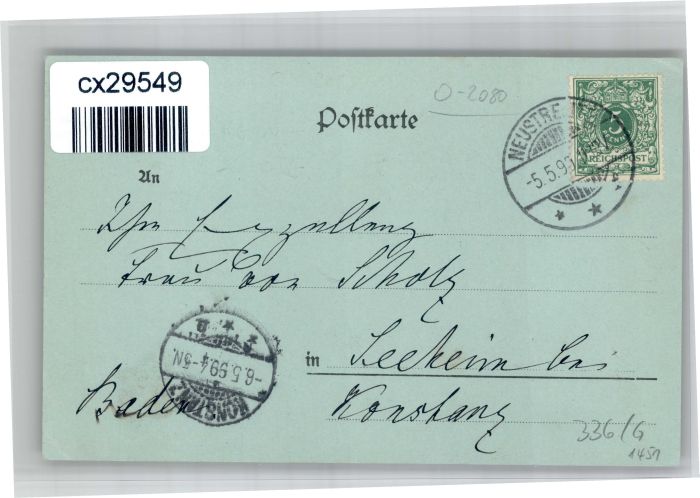 cx29549
O-2080
Postkarte
NEUSTRE
-5.5.99
REICHSPOST
An
Ihre Exzellenz
Frau von Scholz
in Seeheim bei
Konstanz
Baden
KONSTANZ
-6.5.99.4-5N.
336/G
1451